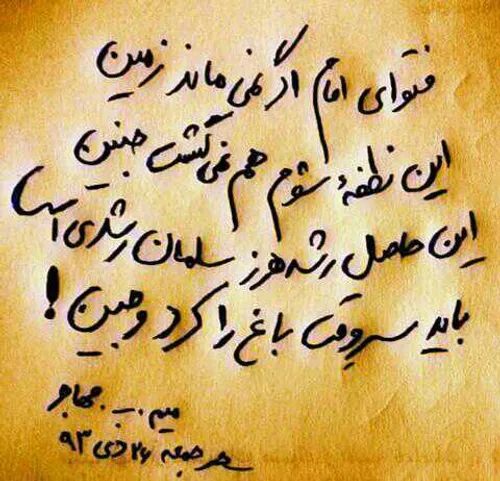 فتوای امام اگر نمی ماند زمین
این نطفهٔ شوم هم نمی گشت جنین
این حاصل رشد هرز سلمان رشدی است
باید سروقت باغ را کرد وجین!
میم. ب. مهاجر
سحر جمعه ۲۶ دی ۹۳